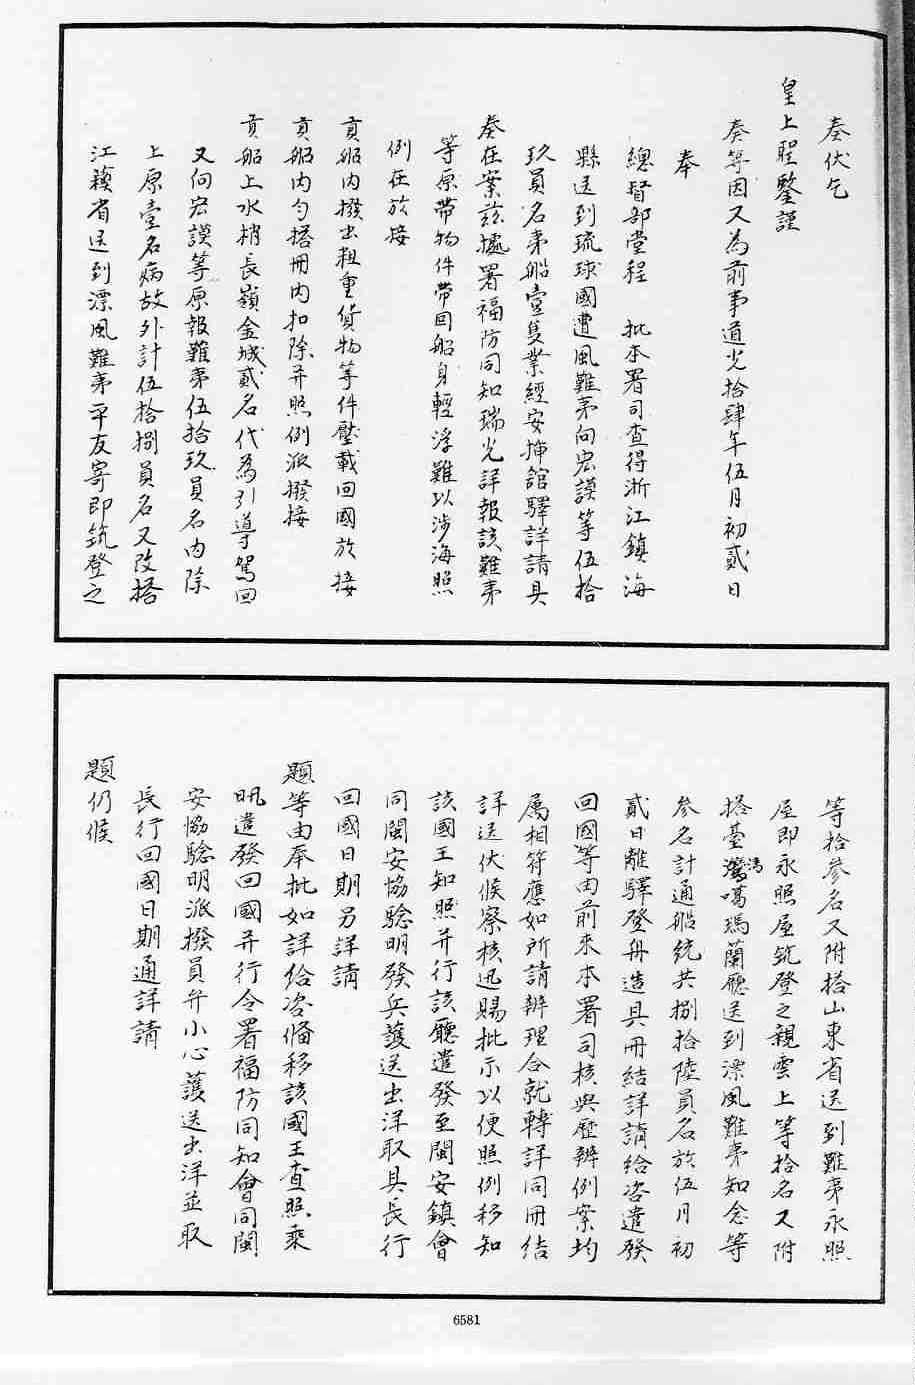 奏伏乞
皇上聖鑒謹
奏等因又為前事道光拾肆年伍月初貳日
奉
總督部堂程　批本署司查得浙江鎮海
縣送到琉球國遭風難夷向宏謨等伍拾
玖員名夷船壹隻業經安揷館驛詳請具
奏在案茲據署福防同知瑞光詳報該難夷
等原帶物件帶回船身輕浮難以涉海照
例在於接
貢船內撥出粗重貨物等件壓載回國於接
貢船內勻搭冊內扣除并照例派撥接
貢船上水梢長嶺金城貳名代為引導駕回
又向宏謨等原報難夷伍拾玖員名內除
上原壹名病故外計伍拾捌員名又改搭
江蘓省送到漂風難夷平友寄即筑登之
等拾參名又附搭山東省送到難夷永照
屋即永照屋筑登之親雲上等拾名又附
搭臺灣噶瑪蘭廳送到漂風難夷知念等
參名計通船統共捌拾陸員名於伍月初
貳日離驛登舟造具冊結詳請給咨遣發
回國等由前來本署司核與歷辦例案均
屬相符應如所請辦理合就轉詳同冊結
詳送伏候察核迅賜批示以便照例移知
該國王知照并行該廳遣發至閩安鎮會
同閩安協驗明發兵護送出洋取具長行
回國日期另詳請
題等由奉批如詳給咨備移該國王查照乘
汛遣發回國并行令署福防同知會同閩
安協驗明派撥員弁小心護送出洋並取
長行回國日期通詳請
題仍候
6581